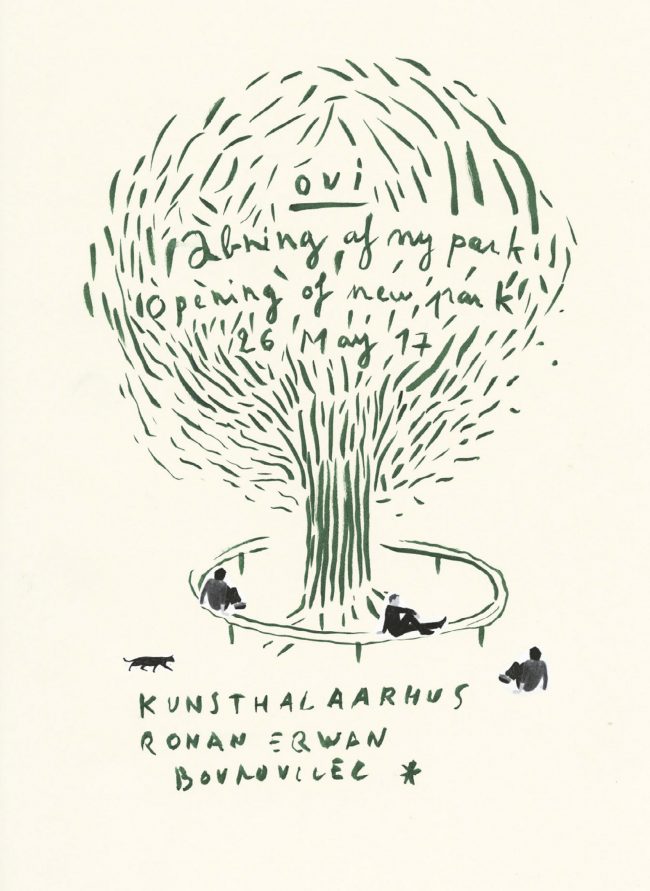 ovi
åbning af ny park
opening of new park
26 May 17
KUNSTHAL AARHUS
RONAN ERWAN
BOUROULLEC *